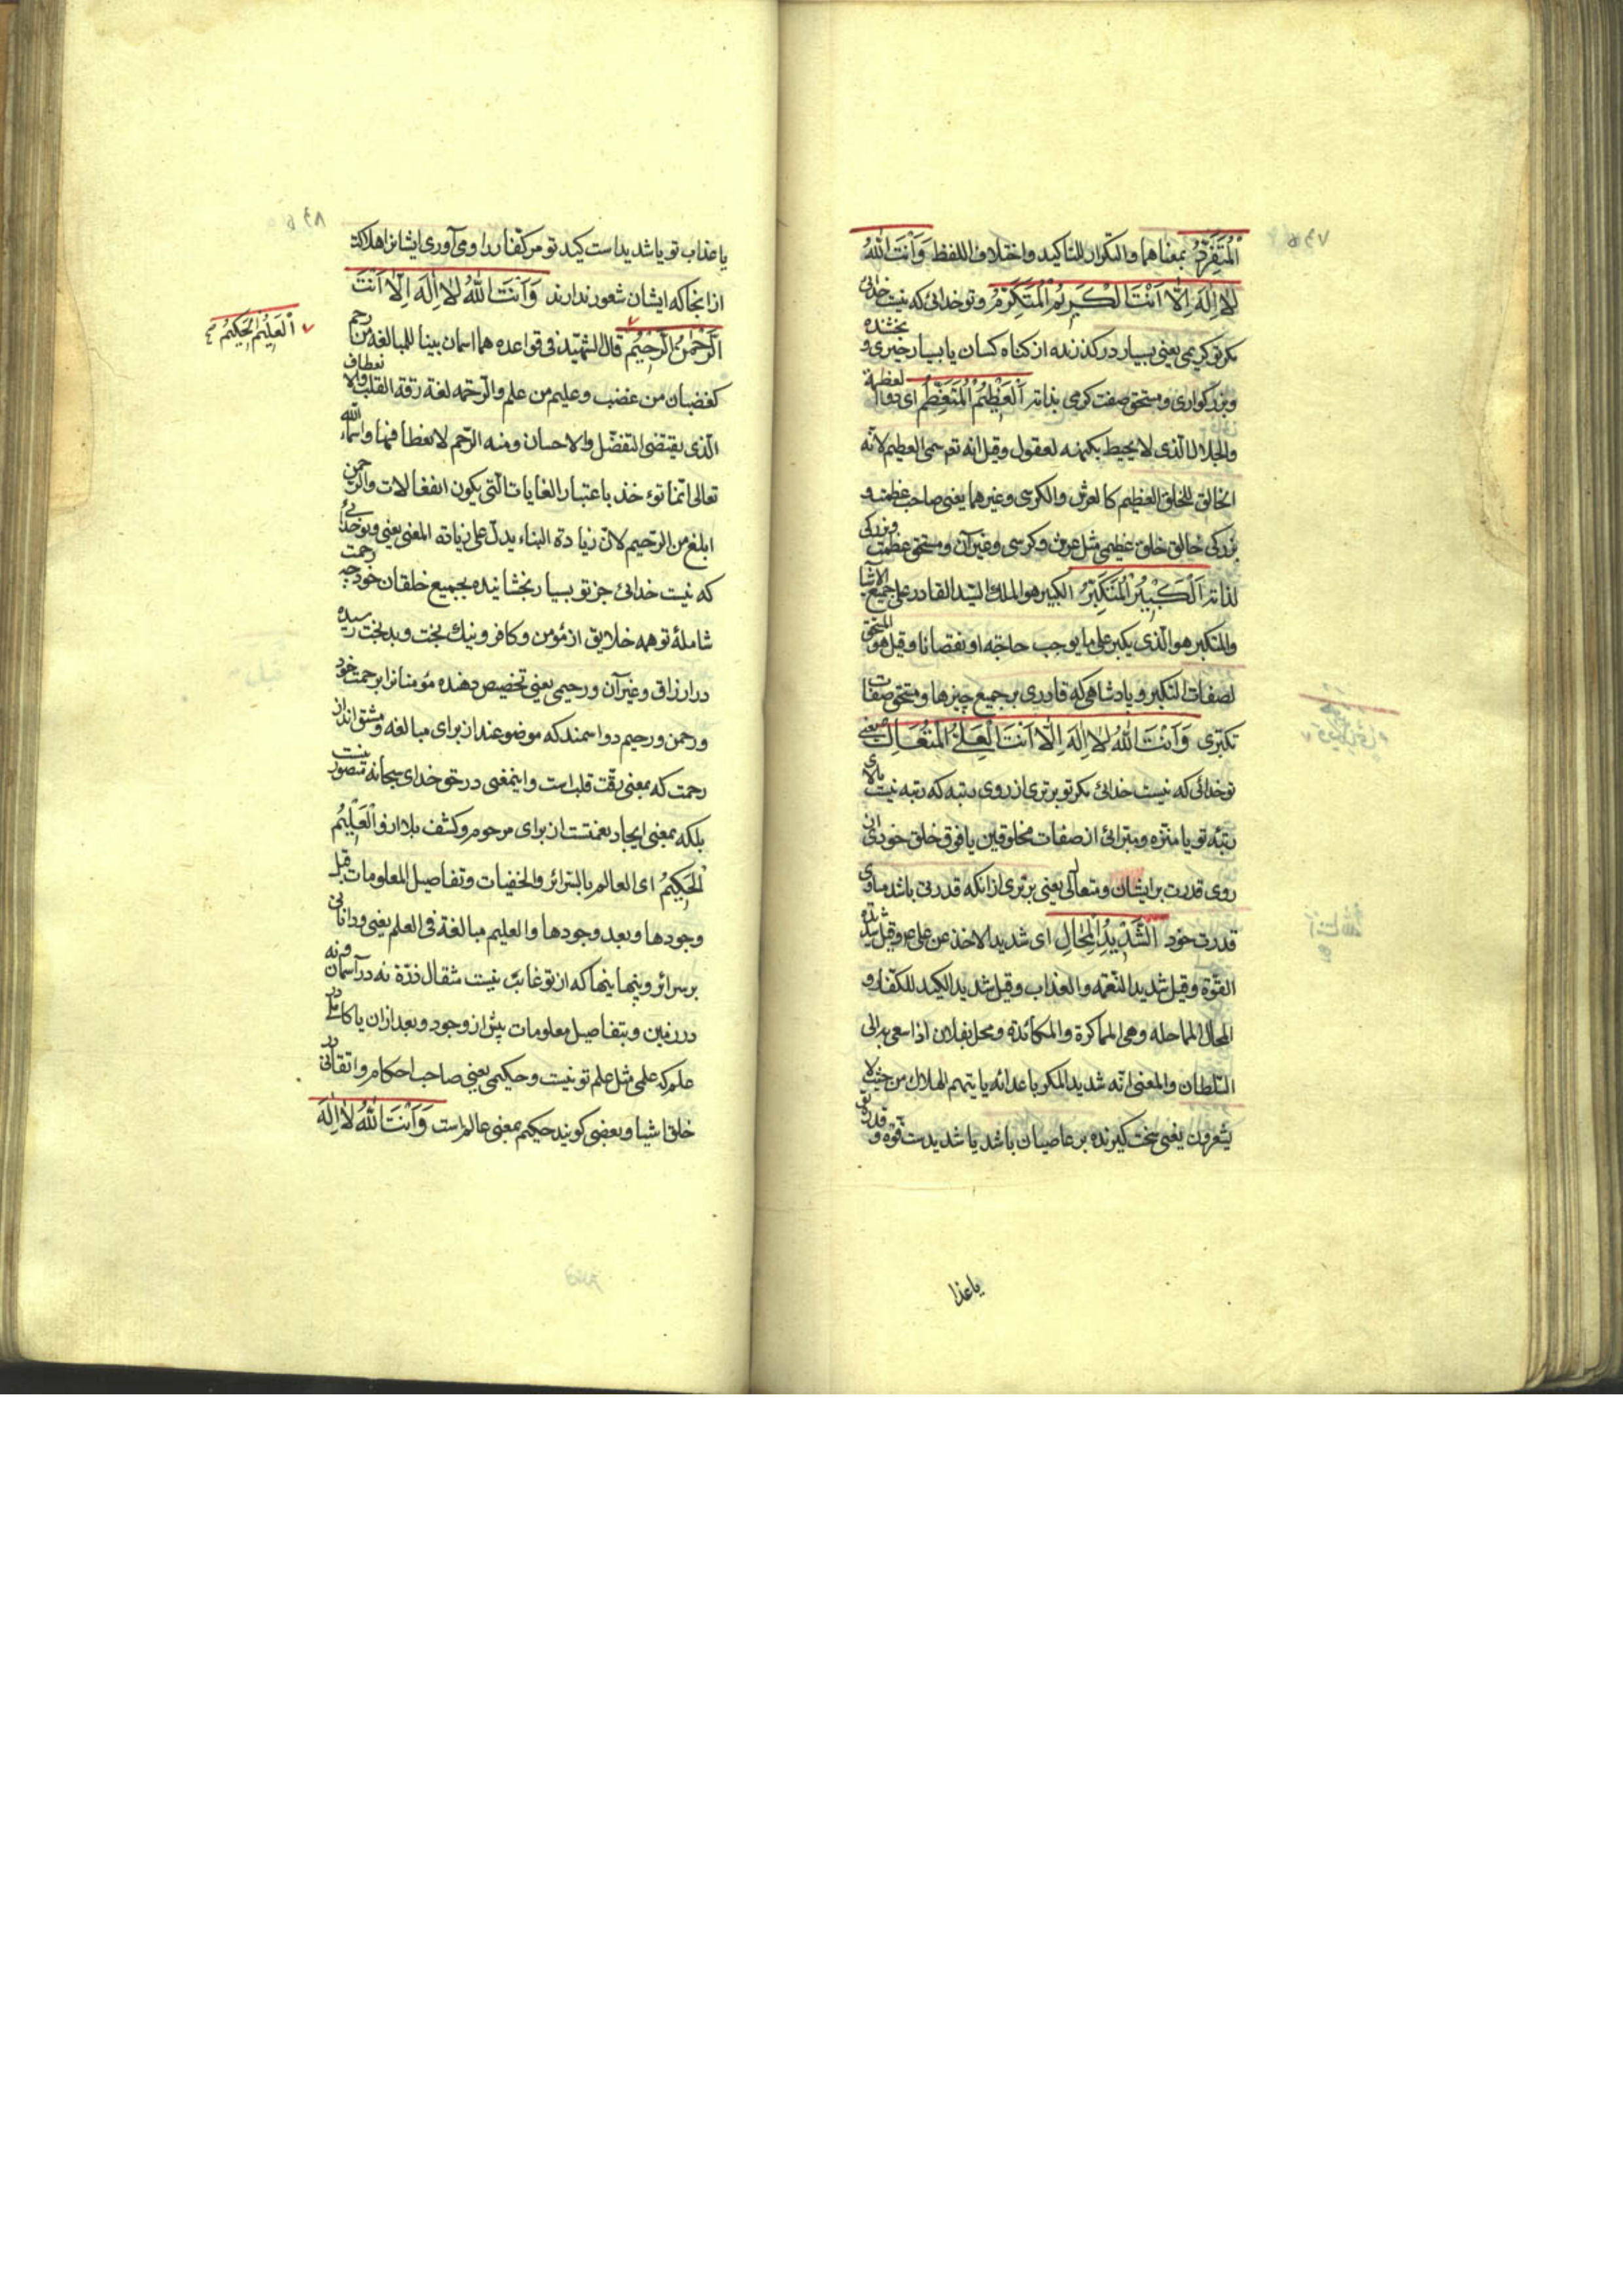 اَلْمُتَفَرِّدُ بمعناهما والتكرار للتاكيد واختلاف اللفظ وَاَنْتَ اللّٰهُ
لاٰ اِلٰهَ اِلّاٰ اَنْتَ الْكَرِيمُ الْمُتَكَرِّمُ و تو خدائی که نیست خدائی
مکر تو کریمی یعنی بسیار درکذرنده از کناه کسان یا بسیار خیری و بخشنده
وبزرکواری ومستحق صفت کرمی بذاته اَلْعَظِيمُ الْمُتَعَظِّمُ ای ذو العظمة
والجلال الذی لا یحیط بکنهه العقول وقیل انه تعر سمی العظیم لانّه
الخالق للخلق العظیم کالعرش والکرسی وغیرهما یعنی صاحب عظمت و
بزرکی خالق خلق عظیمی مثل عرش وکرسی وغیر آن ومستحق عظمت وبزرکی
لذاته اَلْكَبِيرُ الْمُتَكَبِّرُ الکبیر هو الملك السّید القادر علی جمیع الاشیا
والمتکبر هو الّذی یکبر علی ما یوجب حاجة او نقصانا وقیل هو المستحق
لصفات التکبر و پادشاهی که قادری بر جمیع چیزها ومستحق صفات
تکبّری وَاَنْتَ اللّٰهُ لاٰ اِلٰهَ اِلّاٰ اَنْتَ الْعَلِيُّ الْمُتَعَالِ یعنی
تو خدائی که نیست خدائی مکر تو برتری از روی رتبه که رتبه نیست بالای
رتبهٔ تو یا منزّه ومبرّائی از صفات مخلوقین یا فوق خلق خودی از
روی قدرت بر ایشان ومتعالی یعنی برتری از انکه قدرتی باشد مساوی
قدرت خود اَلشَّدِيدُ الْمِحٰالِ ای شدید الاخذ عن علی ص وقیل شدید
القوّة وقیل شدید النّقمه والعذاب وقیل شدید الکید للکفّار و
المحال المماحله وهی المماکرة والمکائدة ومحل بفلان اذا سعی به الی
السّلطان والمعنی انّه شدید المکر باعدائه یاتیهم الهلاك من حیث لا
یشعرون یعنی سخت کیرنده بر عاصیان باشد یا شدیدست قوّة و قدرت تو
یا عذا
یا عذاب تو یا شدید است کید تو مر کفّار را و می آوری ایشانرا هلاکت
از انجا که ایشان شعور ندارند وَاَنْتَ اللّٰهُ لاٰ اِلٰهَ اِلّاٰ اَنْتَ
اَلرَّحْمٰنُ الرَّحِيمُ قال الشهید فی قواعده هما اسمان بینا للمبالغه من رحم
اَلْعَلِيمُ الْحَكِيمُ
کغضبان من غضب وعلیم من علم والرّحمه لغة رقة القلب وانعطاف
الّذی یقتضی التفضّل والاحسان ومنه الرّحم لانعطافها واسماء اللّه
تعالی انّما تؤخذ باعتبار الغایات الّتی یکون انفعالات والرّحمن
ابلغ من الرّحیم لانّ زیادة البناء یدلّ علی زیادة المعنی یعنی وتوخدائی
که نیست خدائی جز تو بسیار بخشاینده بجمیع خلقان خود چه رحمت
شاملهٔ تو همه خلایق از مؤمن وکافر ونیك بخت وبد بخت رسیده
در ارزاق وغیر آن ورحیمی یعنی تخصیص دهنده مؤمنانرا برحمت خود
ورحمن ورحیم دو اسمند که موضوعند از برای مبالغه ومشتق اند از
رحمت که بمعنی رقّت قلب است واینمعنی در حق خدای سبحانه متصور نیست
بلکه بمعنی ایجاد نعمتست از برای مرحوم وکشف بلا ازو اَلْعَلِيمُ
الْحَكِيمُ ای العالم بالسّرائر والخفیات وتفاصیل المعلومات قبل
وجودها وبعد وجودها والعلیم مبالغة فی العلم یعنی ودانائی
بر سرائر وپنهانیها که از تو غائب نیست مثقال ذرّه نه در آسمان ونه
در زمین وبتفاصیل معلومات پیش از وجود وبعد از ان یا کاملی در
علم که علمی مثل علم تو نیست وحکیمی یعنی صاحب احکام واتقانی در
خلق اشیا وبعضی کویند حکیم بمعنی عالم است وَاَنْتَ اللّٰهُ لاٰ اِلٰهَ